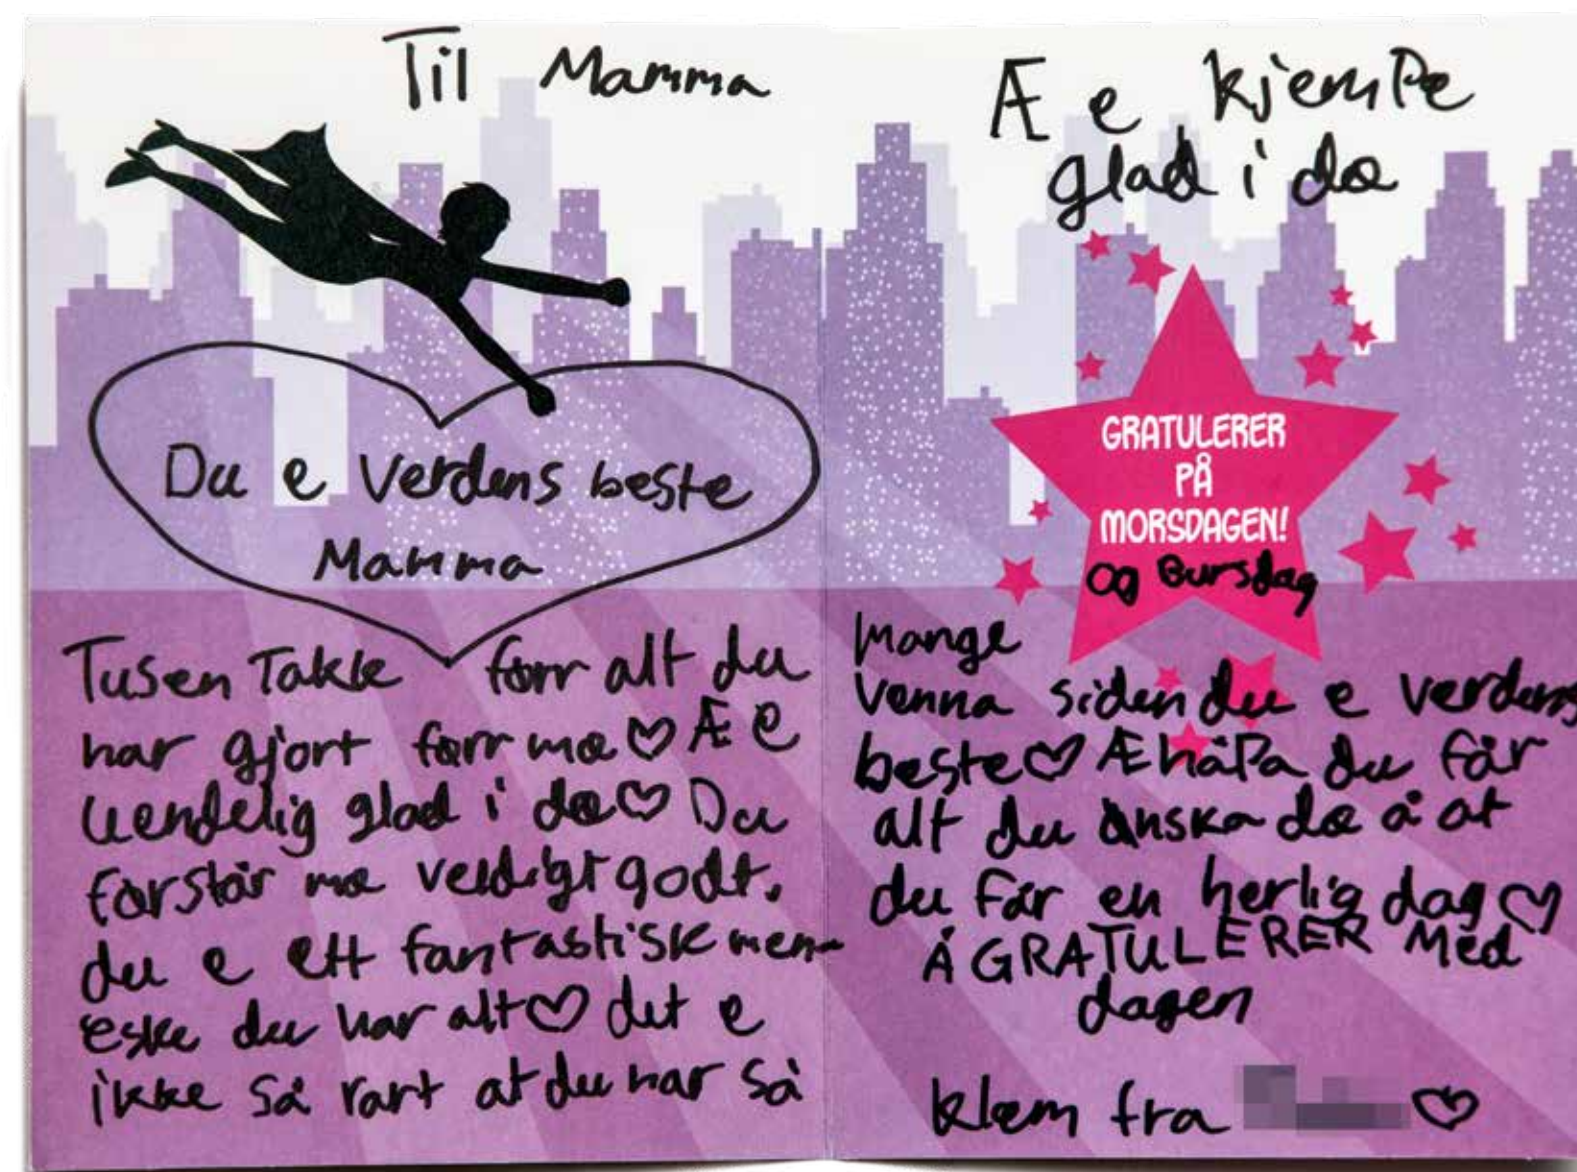 Til Mamma
Du e verdens beste
Mamma
Tusen Takk forr alt du
har gjort forr mæ ♡ Æ e
uendelig glad i dæ ♡ Du
forstår mæ veldigt godt.
du e ett fantastisk men-
eske du har alt ♡ det e
ikke så rart at du har så
Æ e kjempe
glad i dæ
GRATULERER
PÅ
MORSDAGEN!
og Bursdag
Mange
venna siden du e verdens
beste ♡ Æ håpa du får
alt du ønska dæ å at
du får en herlig dag ♡
Å GRATULERER Med
dagen
klem fra ♡